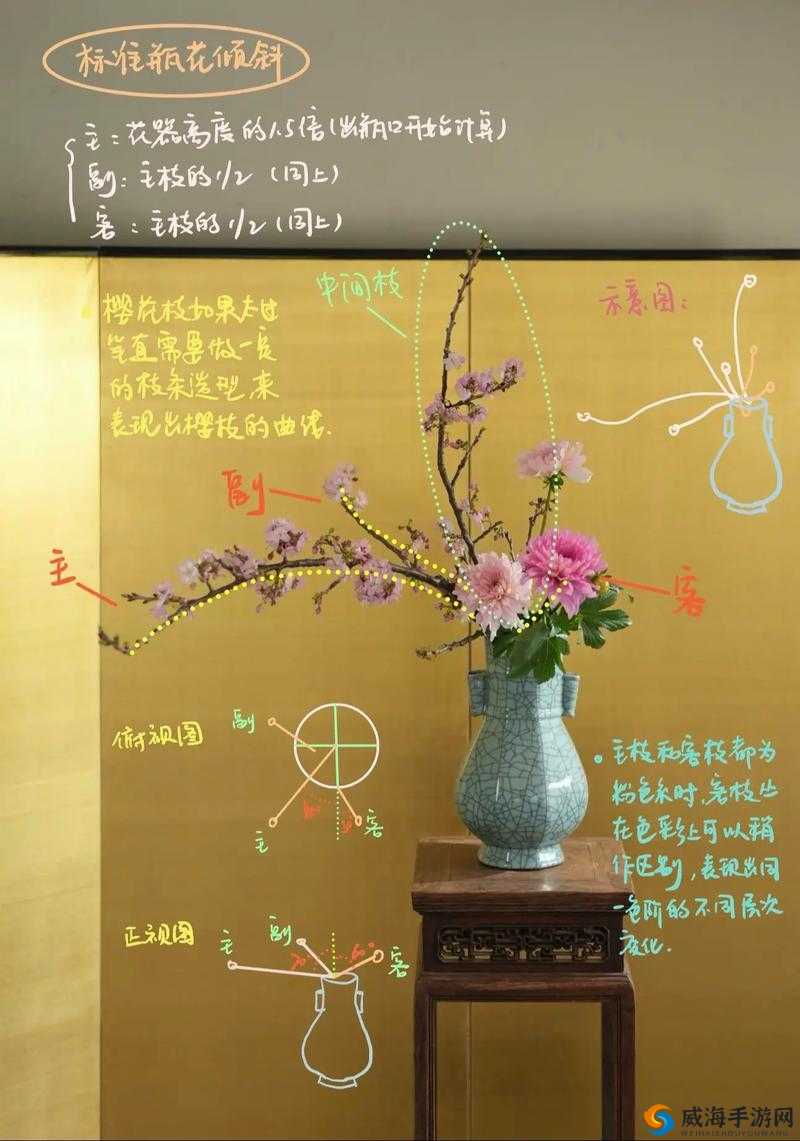 标准瓶花倾斜
主：花器高度的1.5倍(出瓶口开始计算)
副：主枝的1/2（同上）
客：主枝的1/2（同上）
中间枝
示意图：
樱花枝如果太过
笔直需要做一定
的枝条造型,来
表现出樱枝的曲线.
副
主
客
俯视图
副
主
客
主枝和客枝都为
粉色系时,客枝丛
在色彩上可以稍
作区别,表现出同
一色阶的不同层次
变化.
正视图
主
副
客
70°
60°
威海手游网
WEIHAISHOUYOUWANG